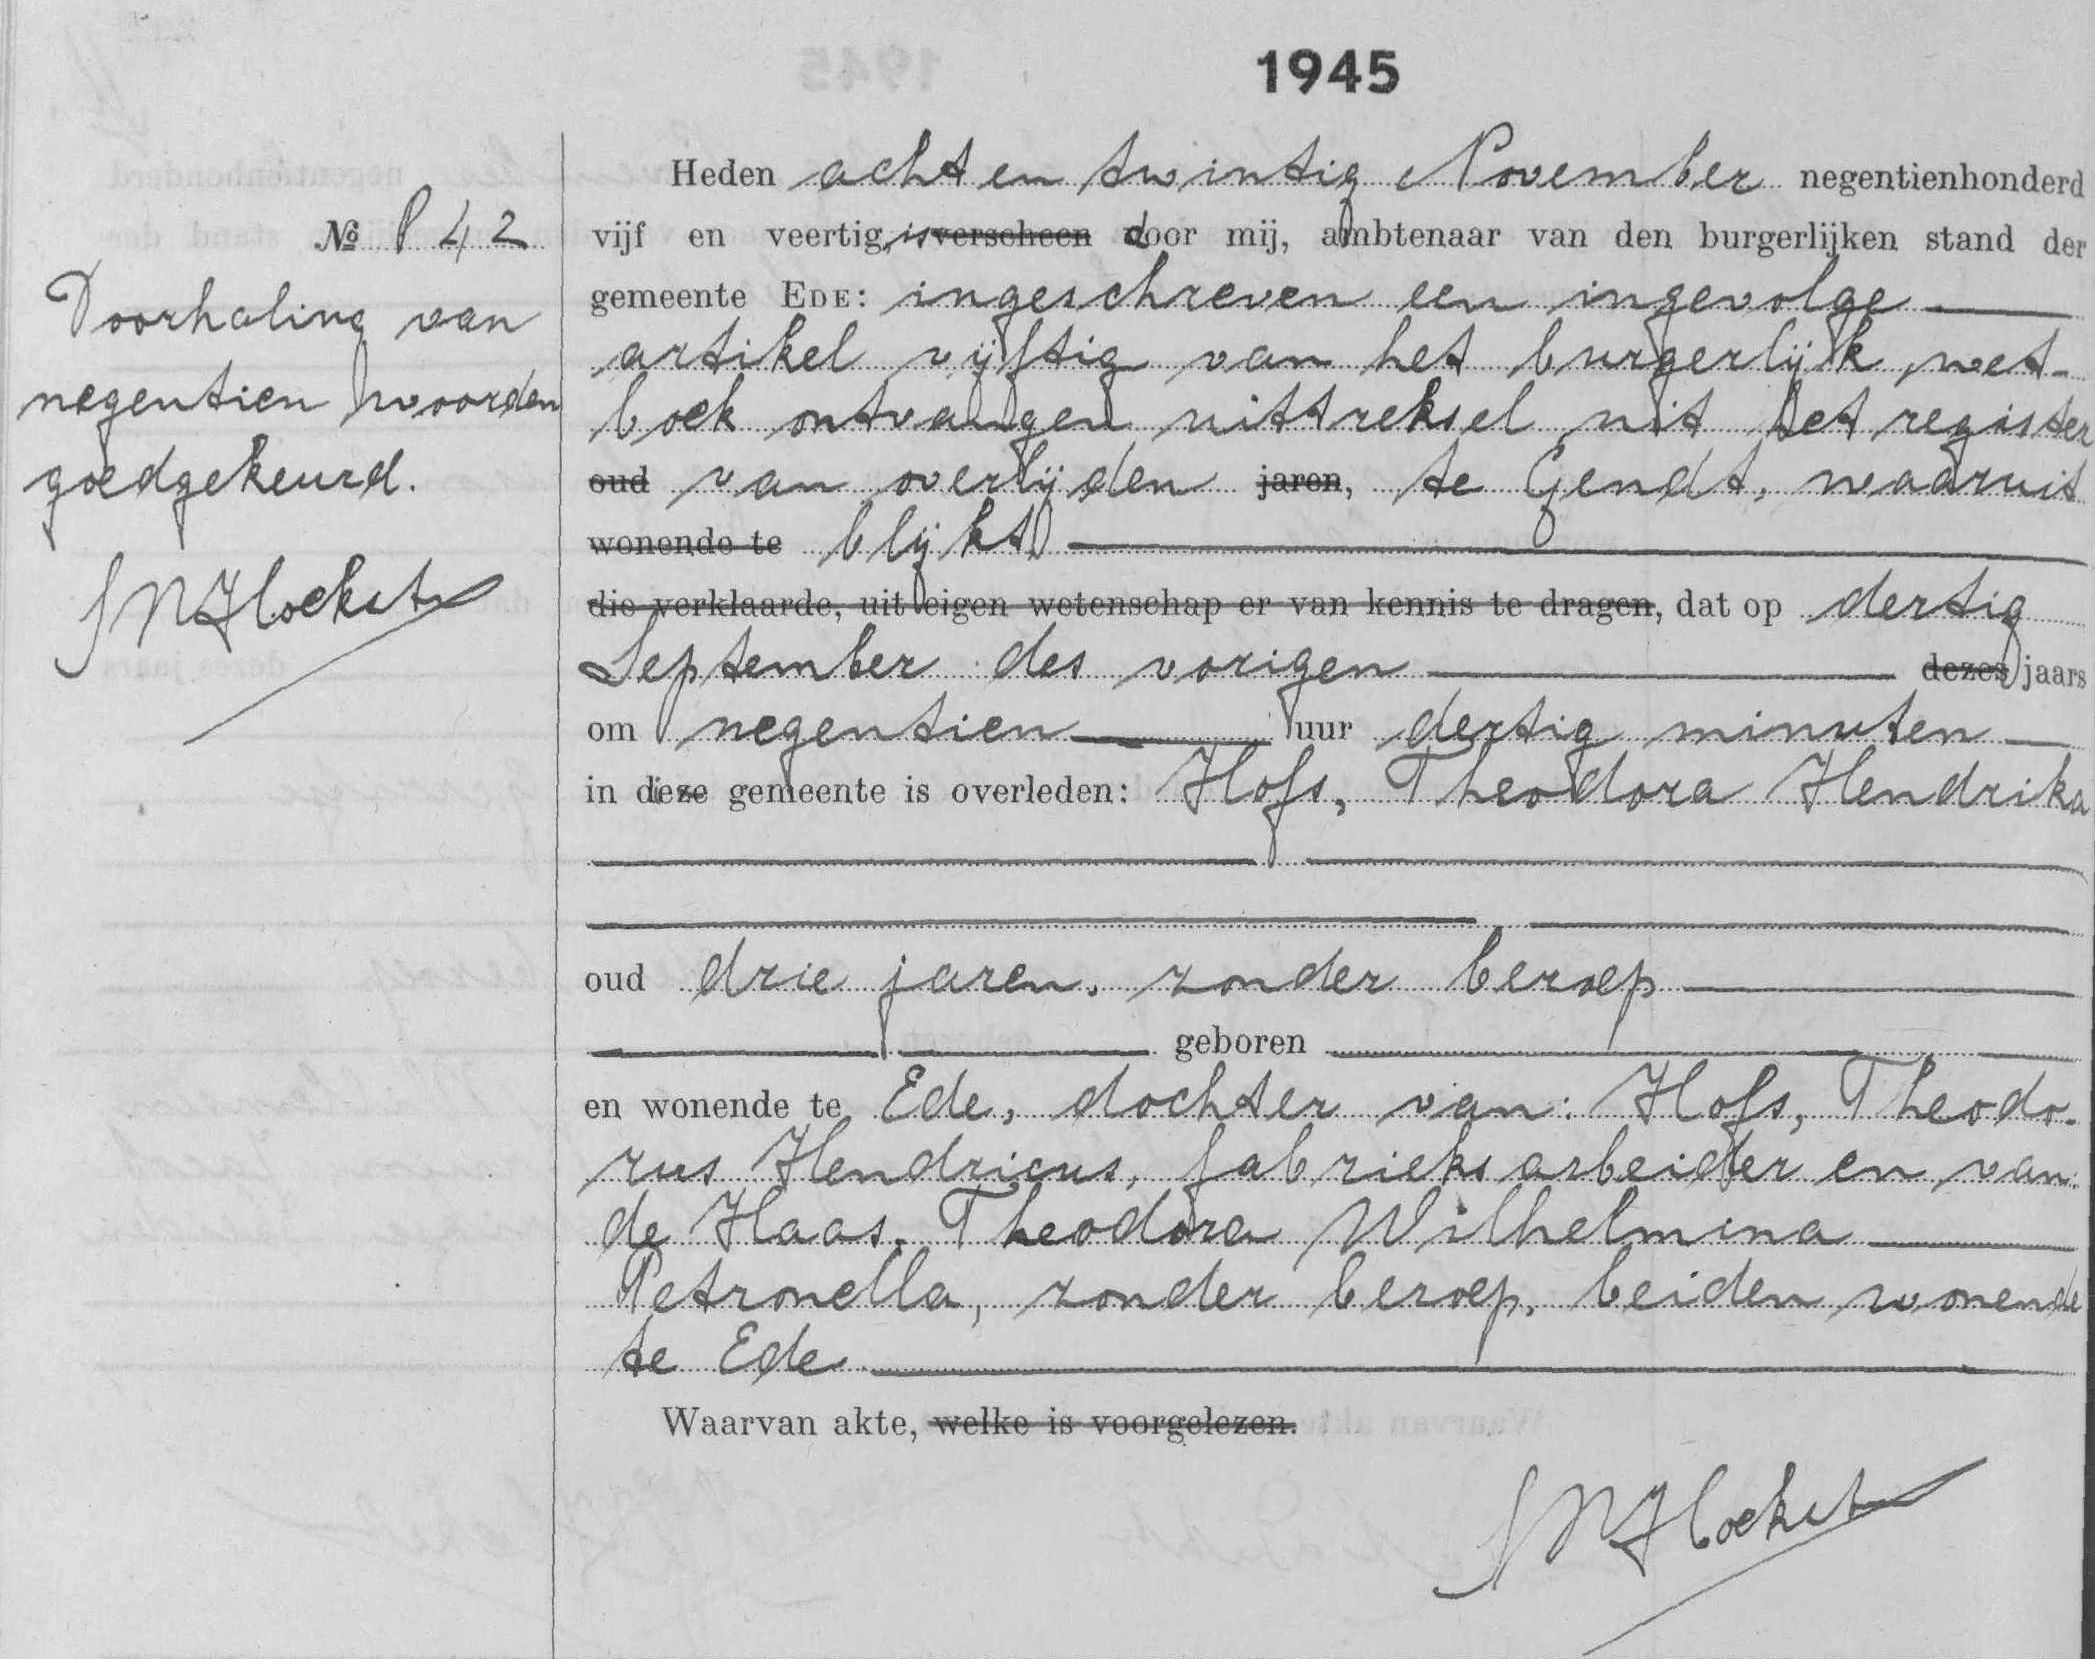 1945
Heden acht en twintig November negentienhonderd
No 842
vijf en veertig, is verscheen door mij, ambtenaar van den burgerlijken stand der
Doorhaling van
gemeente EDE: ingeschreven een ingevolge
artikel vijftig van het burgerlijk wet-
negentien woorden
boek ontvangen uittreksel uit het register
goedgekeurd.
oud van overlijden jaren, te Gendt, waaruit
wonende te blijkt
die verklaarde, uit eigen wetenschap er van kennis te dragen, dat op dertig
September des vorigen dezes jaars
om negentien uur dertig minuten
in deze gemeente is overleden: Hofs, Theodora Hendrika
oud drie jaren, zonder beroep
geboren
en wonende te Ede, dochter van: Hofs, Theodo-
rus Hendricus, fabrieksarbeider en van
de Haas, Theodora Wilhelmina
Petronella, zonder beroep, beiden wonende
te Ede
Waarvan akte, welke is voorgelezen.